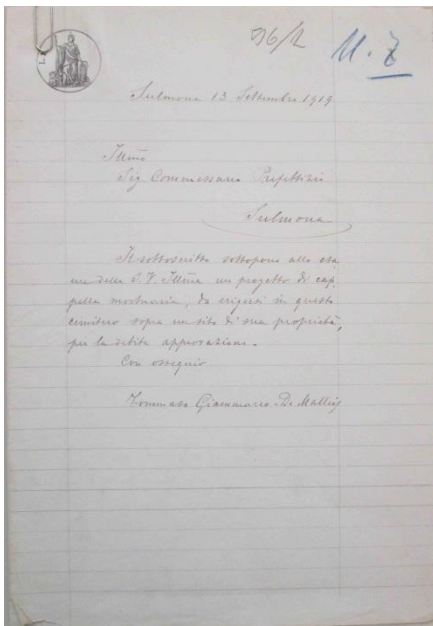 96/2
11.7
Sulmona 13 Settembre 1919
Illmo
Sig Commessario Prefettizio
Sulmona
Il sottoscritto sottopone allo esa
me della S. V. Illma un progetto di cap
pella mortuaria, da erigersi in questo
cimitero sopra un sito di sua proprietà,
per la debita approvazione.
Con ossequio
Tommaso Giammarco De Matteis